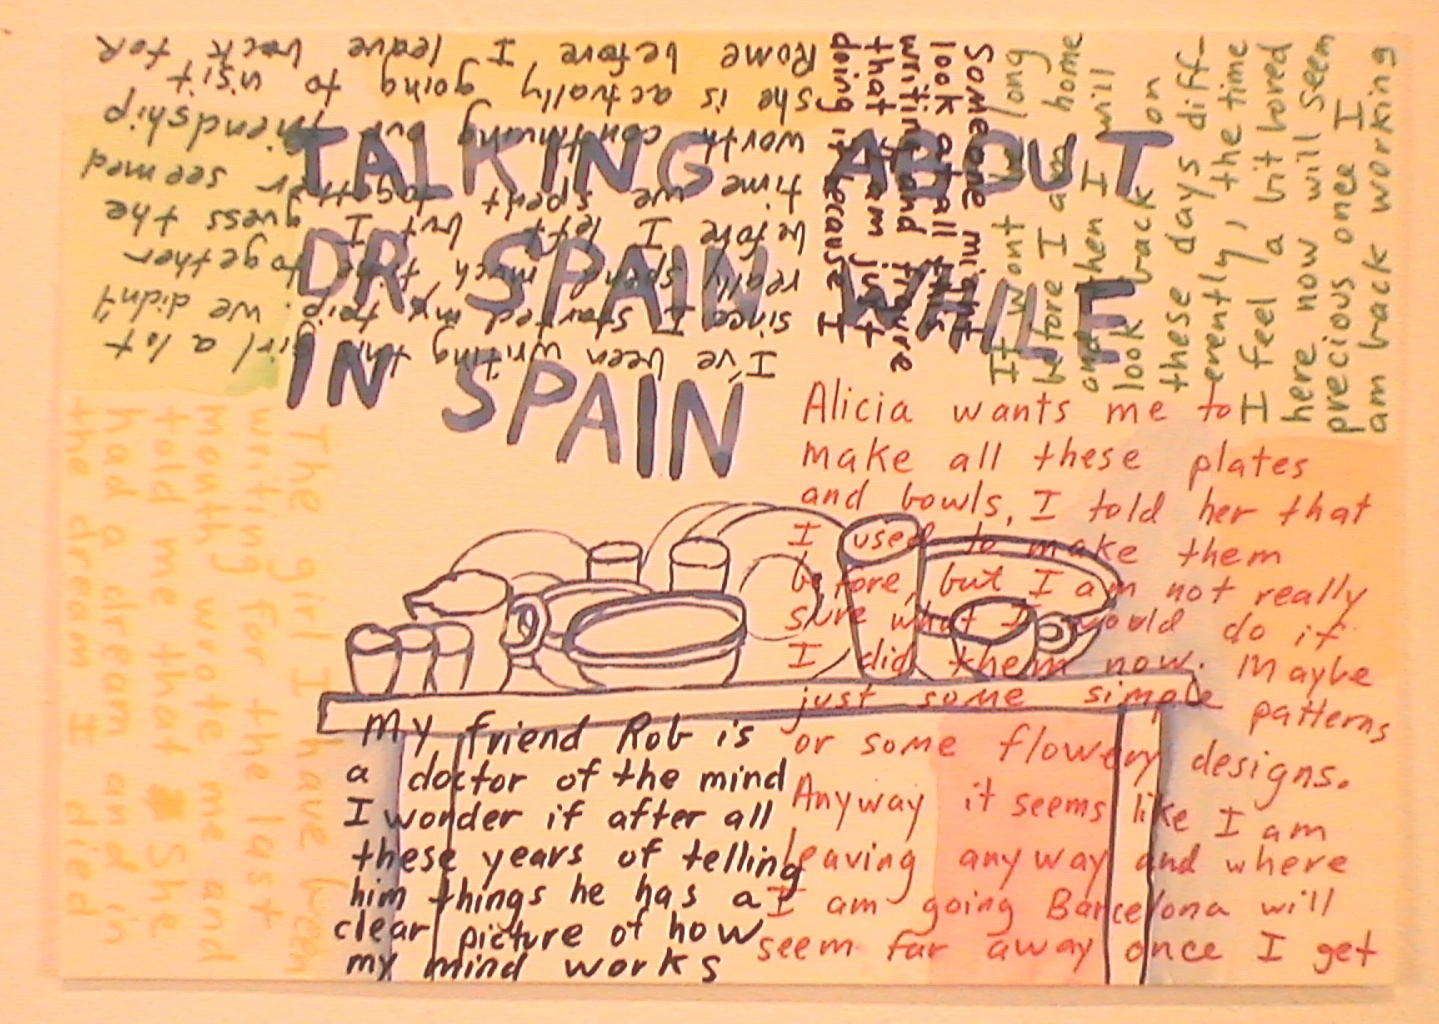 TALKING ABOUT
DR SPAIN WHILE
IN SPAIN
I've been writing this girl a lot
since I started my trip. we didn't
really spend much time together
before I left but I guess the
time we spent together seemed
worth continuing our friendship
she is actually going to visit
Rome before I leave back for
Someone might
look at all this
writing and
that I am just
doing it because I
It wont be long
before I am home
and then I will
look back on
these days diff-
erently, the time
I feel a bit bored
here now will seem
precious once I
am back working
Alicia wants me to
make all these plates
and bowls, I told her that
I used to make them
before, but I am not really
sure what I would do if
I did them now. Maybe
just some simple patterns
or some flowery designs.
Anyway it seems like I am
leaving anyway and where
I am going Barcelona will
seem far away once I get
My friend Rob is
a doctor of the mind
I wonder if after all
these years of telling
him things he has a
clear picture of how
my mind works
The girl I have been
writing for the last
month wrote me and
told me that She
had a dream and in
the dream I died